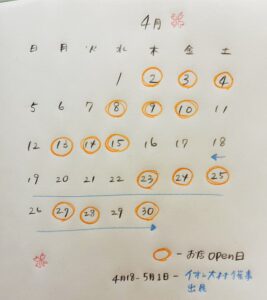 4月
日 月 火 水 木 金 土
1 2 3 4
5 6 7 8 9 10 11
12 13 14 15 16 17 18
19 20 21 22 23 24 25
26 27 28 29 30
- お店 OPEN日
4月18-5月1日 - イオン大村催事
出展